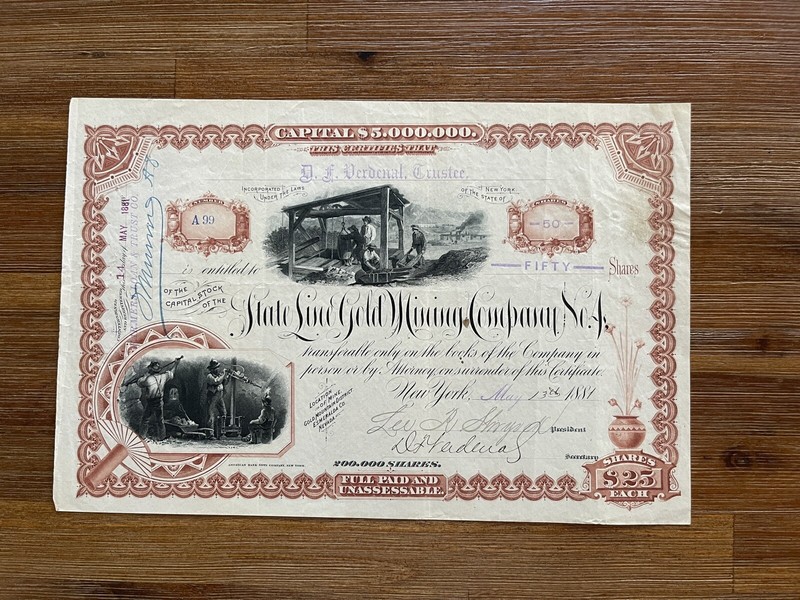 CAPITAL $5.000.000.
THIS CERTIFIES THAT
D. F. Verdenal, Trustee.
INCORPORATED UNDER THE LAWS
OF THE STATE OF NEW YORK
NUMBER
A 99
SHARES
50
is entitled to
FIFTY Shares
OF THE CAPITAL STOCK OF THE
State Line Gold Mining Company, No. 4,
transferable only on the books of the Company in
person or by Attorney, on surrender of this Certificate.
New York, May 13th 1881
LOCATION OF MINE,
GOLD MOUNTAIN DISTRICT
ESMERALDA CO.
NEVADA.
President
D F Verdenal
Secretary
AMERICAN BANK NOTE COMPANY, NEW YORK.
200.000 SHARES.
FULL PAID AND
UNASSESSABLE.
SHARES
$25
EACH
14 day of MAY, 1881
TRUST CO